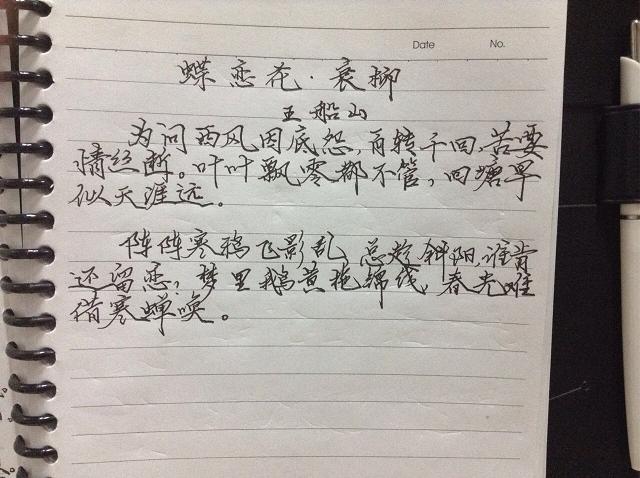 Date No.
蝶恋花·衰柳
王船山
为问西风因底怨,百转千回,苦要
情丝断。叶叶飘零都不管,回塘早
似天涯远。
阵阵寒鸦飞影乱,总趁斜阳,谁肯
还留恋,梦里鹅黄拖锦线,春光难
借寒蝉唤。